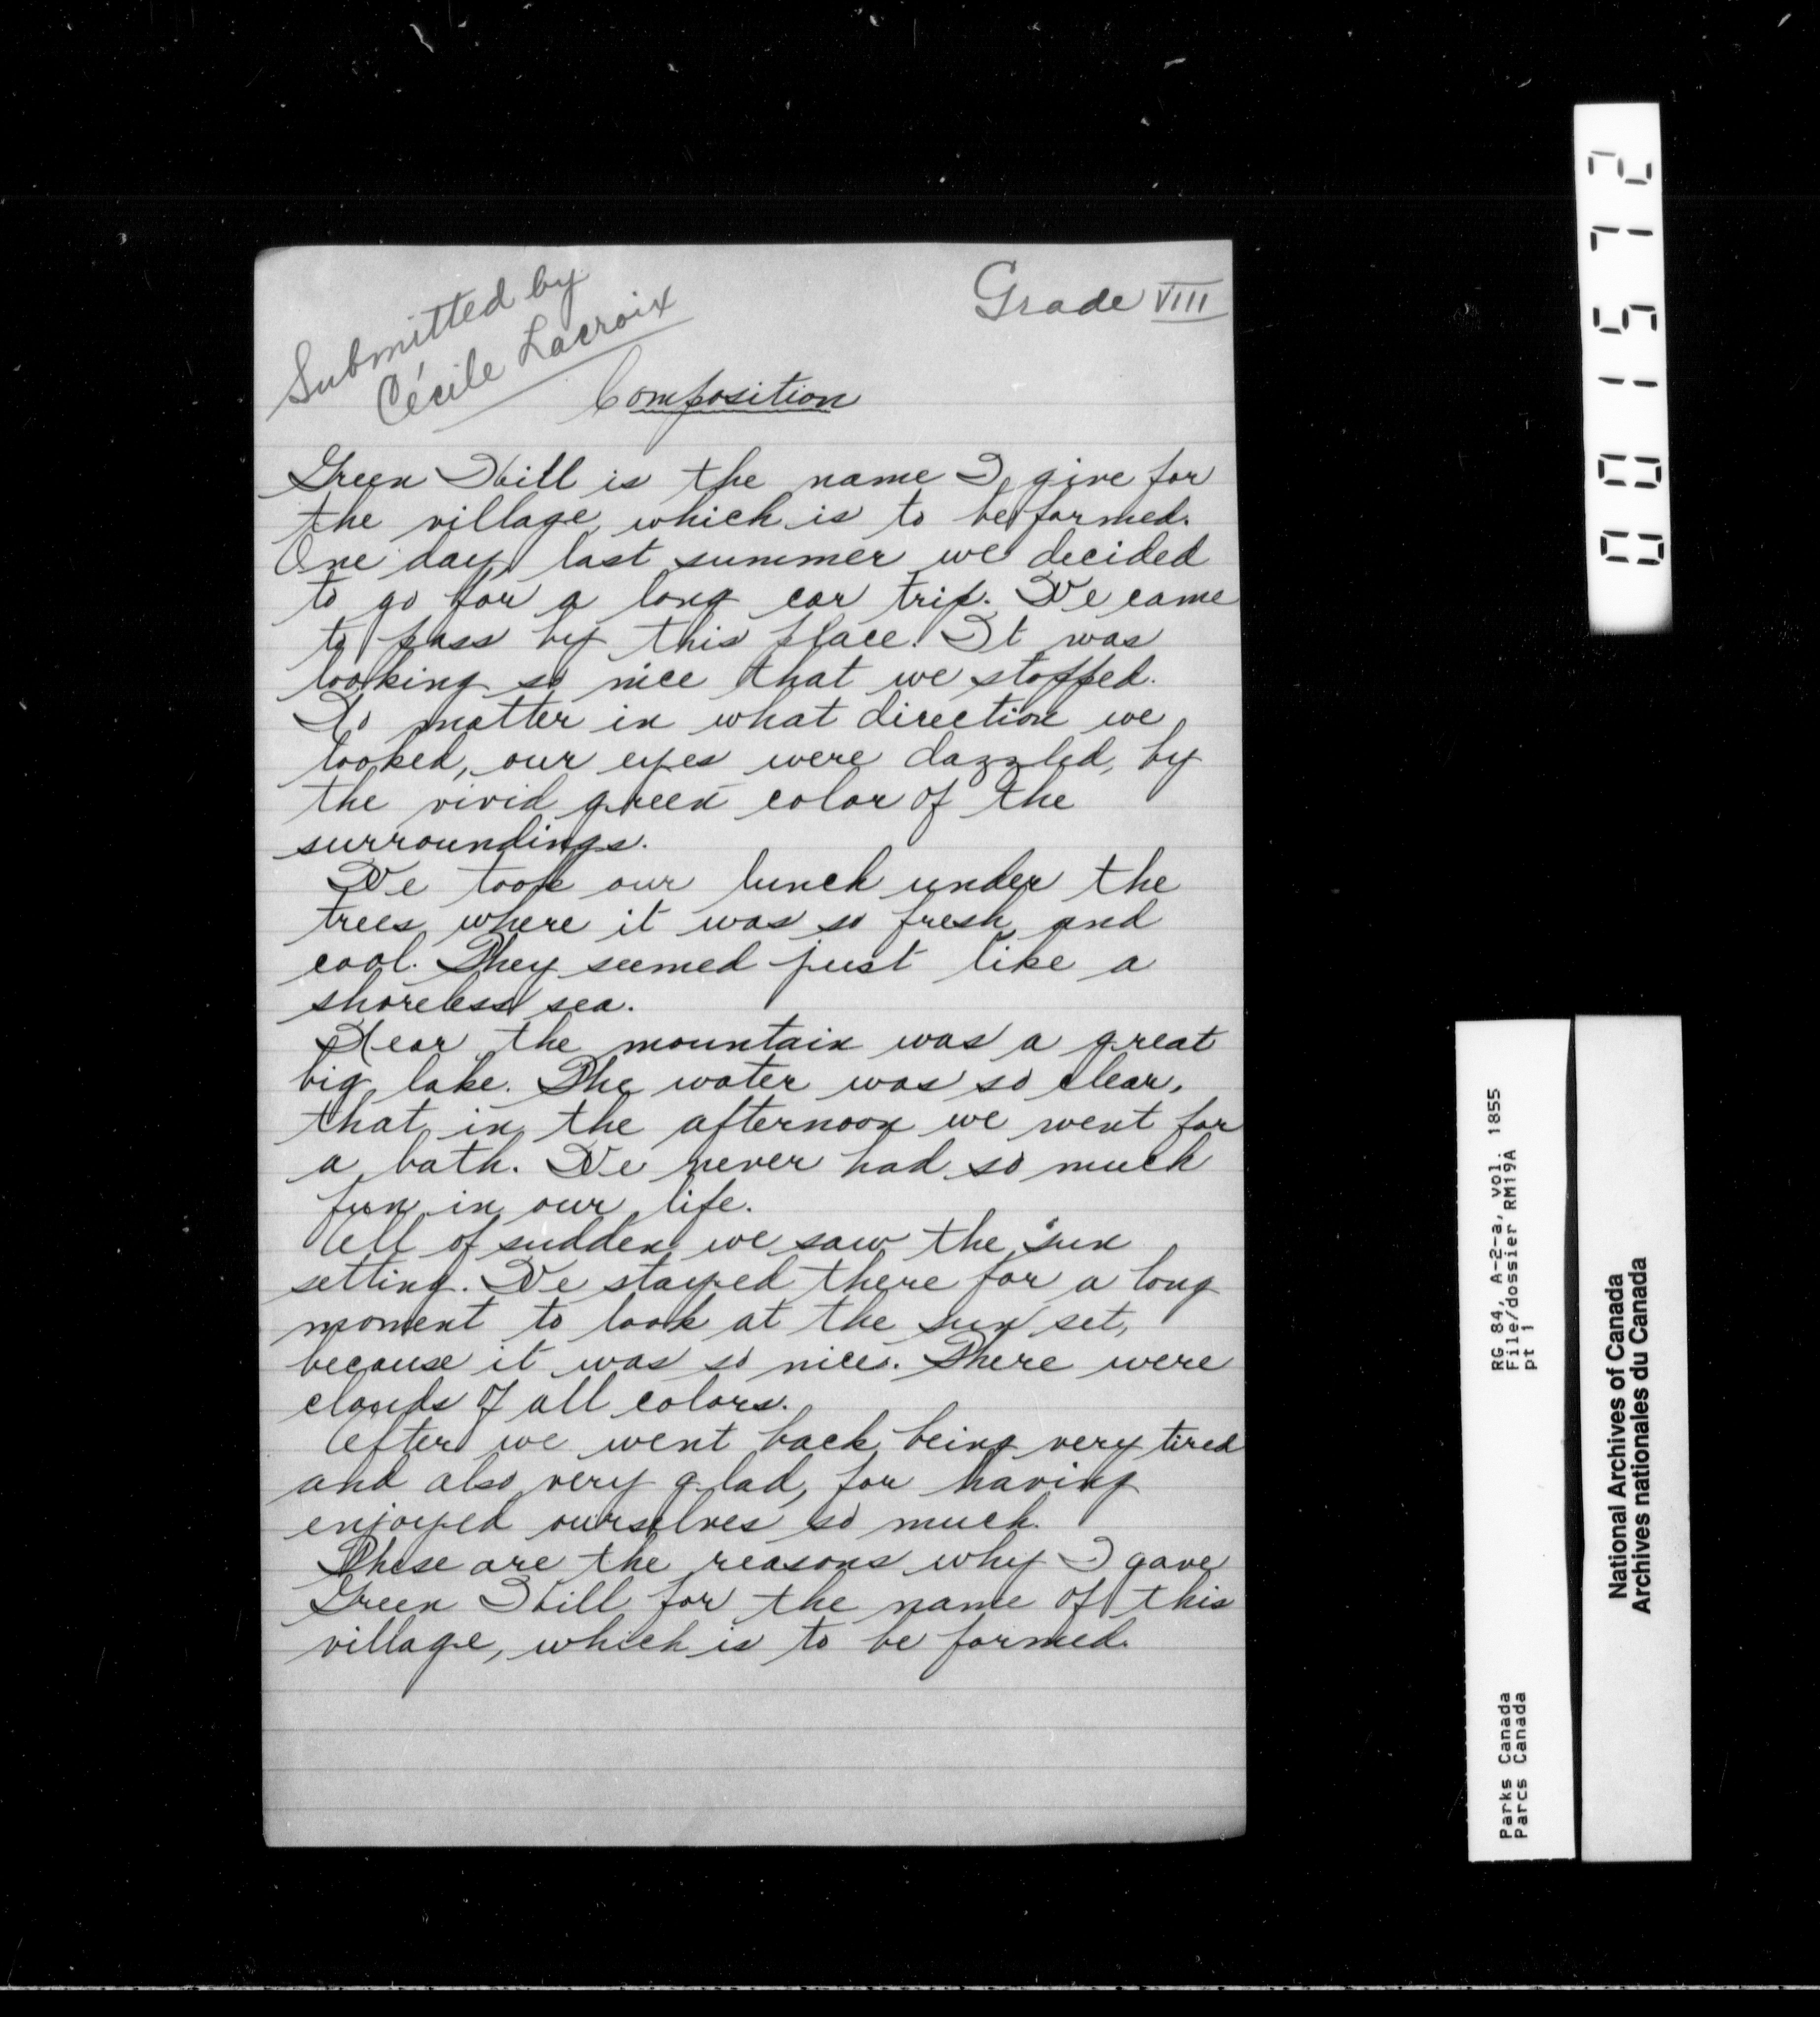 Submitted by
Cécile Lacroix
Grade VIII
Composition
Green Hill is the name I give for
the village, which is to be formed.
One day, last summer we decided
to go for a long car trip. We came
to pass by this place. It was
looking so nice that we stopped.
No matter in what direction we
looked, our eyes were dazzled, by
the vivid green color of the
surroundings.
We took our lunch under the
trees, where it was so fresh and
cool. They seemed just like a
shoreless sea.
Near the mountain was a great
big lake. The water was so clear,
that in the afternoon we went for
a bath. We never had so much
fun in our life.
All of sudden we saw the sun
setting. We stayed there for a long
moment to look at the sun set,
because it was so nice. There were
clouds of all colors.
After we went back being very tired
and also very glad, for having
enjoyed ourselves so much.
These are the reasons why I gave
Green Hill for the name of this
village, which is to be formed.
001572
RG 84, A-2-a, vol. 1855
File/dossier RM19A
pt 1
Parks Canada
Parcs Canada
National Archives of Canada
Archives nationales du Canada